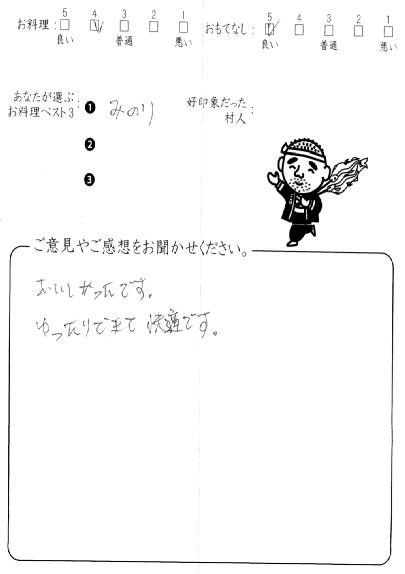 お料理: 5 4 3 2 1
良い 普通 悪い
おもてなし: 5 4 3 2 1
良い 普通 悪い
あなたが選ぶ
お料理ベスト3:
❶ みのり
❷
❸
好印象だった
村人:
ご意見やご感想をお聞かせください。
おいしかったです。
ゆったりできて快適です。